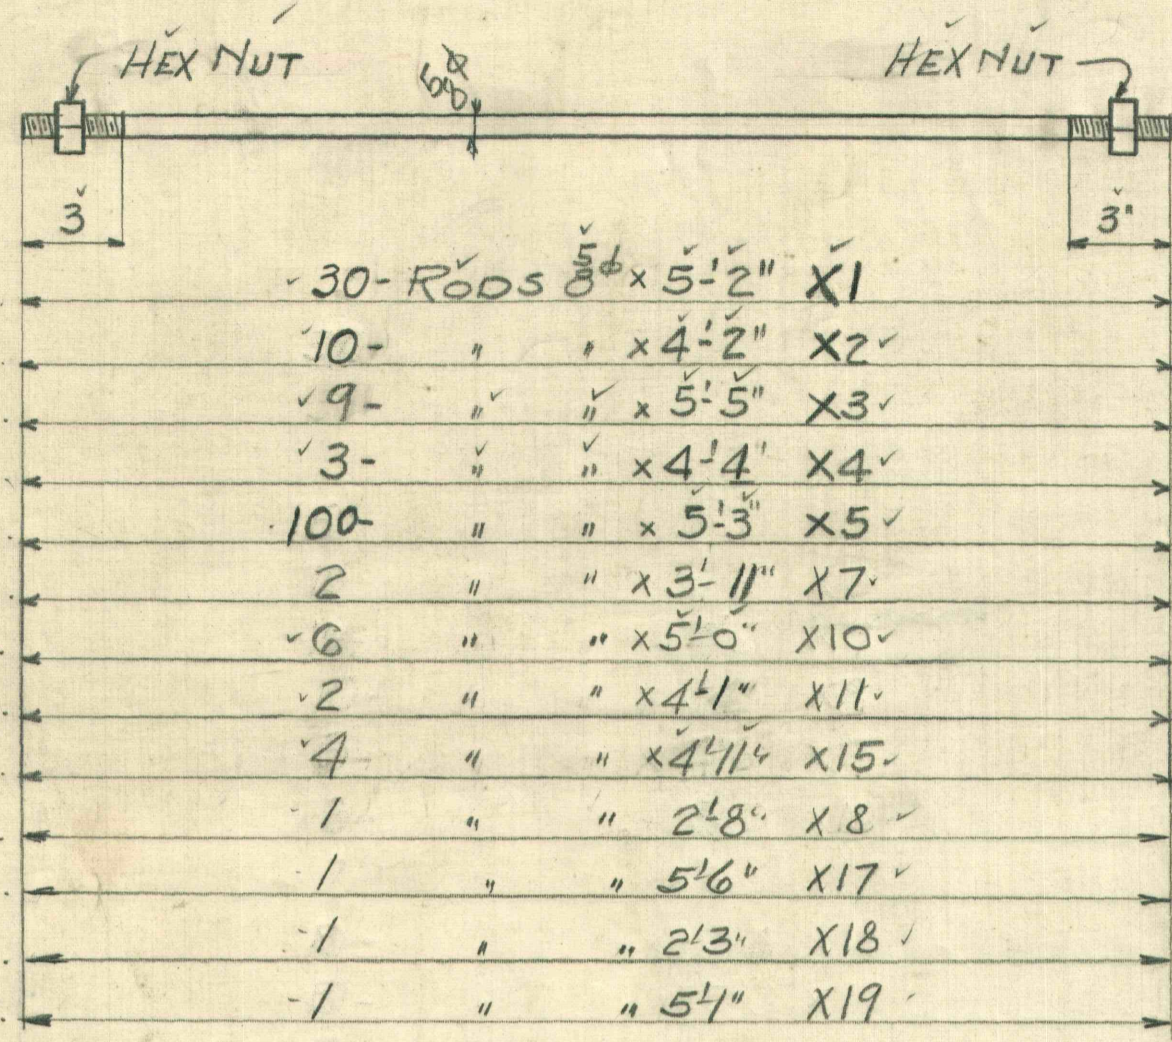 HEX NUT HEX NUT
5/8 φ
3" 3"
30- RODS 5/8 φ x 5'-2" X1
10- " " x 4'-2" X2
9- " " x 5'-5" X3
3- " " x 4'-4" X4
100- " " x 5'-3" X5
2 " " x 3'-11" X7
6 " " x 5'-0" X10
2 " " x 4'-1" X11
4 " " x 4'-11" X15
1 " " 2'-8" X8
1 " " 5'-6" X17
1 " " 2'-3" X18
1 " " 5'-1" X19